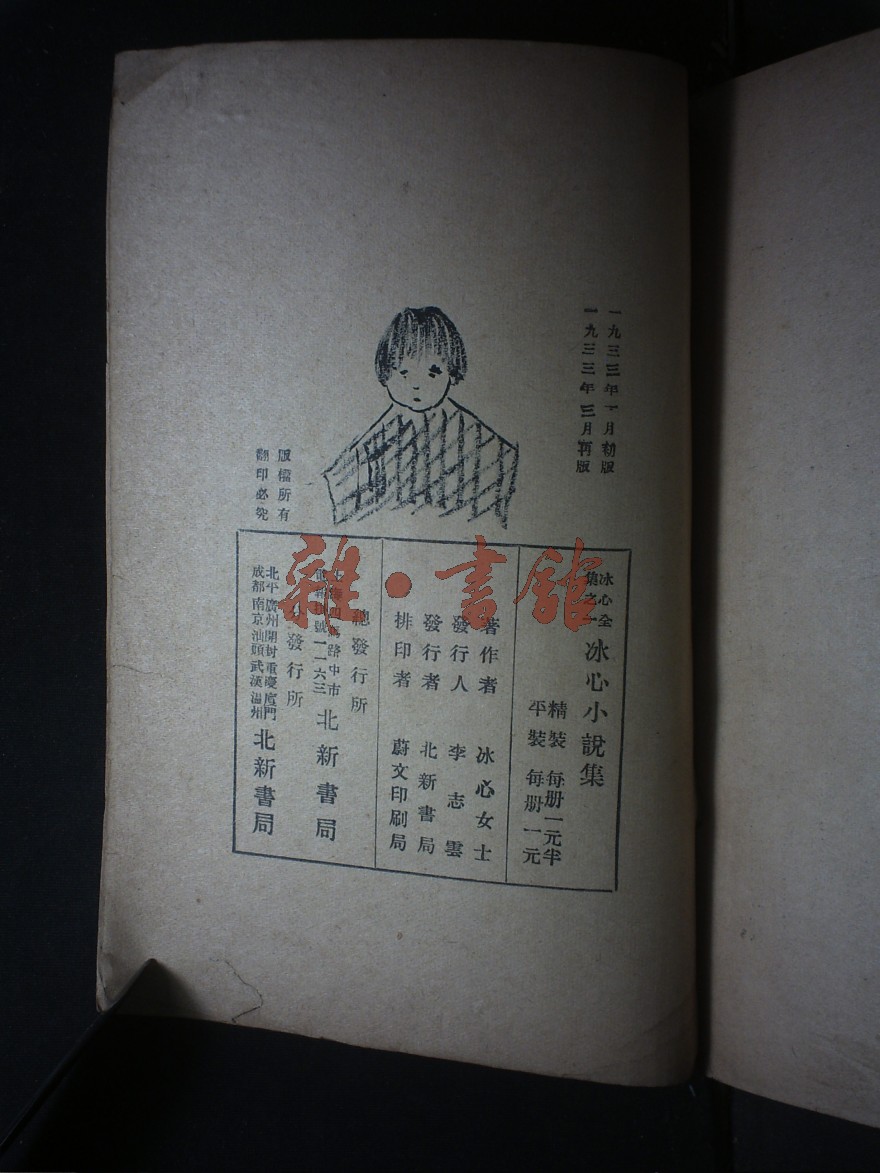 一九三三年一月初版
一九三三年三月再版
版權所有
翻印必究
冰心全
集之一
冰心小說集
精裝 每册一元半
平裝 每册一元
著作者 冰心女士
發行人 李志雲
發行者 北新書局
排印者 蔚文印刷局
總發行所
路中市
號一一六三
北新書局
發行所
北平廣州開封重慶廈門
成都南京汕頭武漢溫州
北新書局
雜·書館